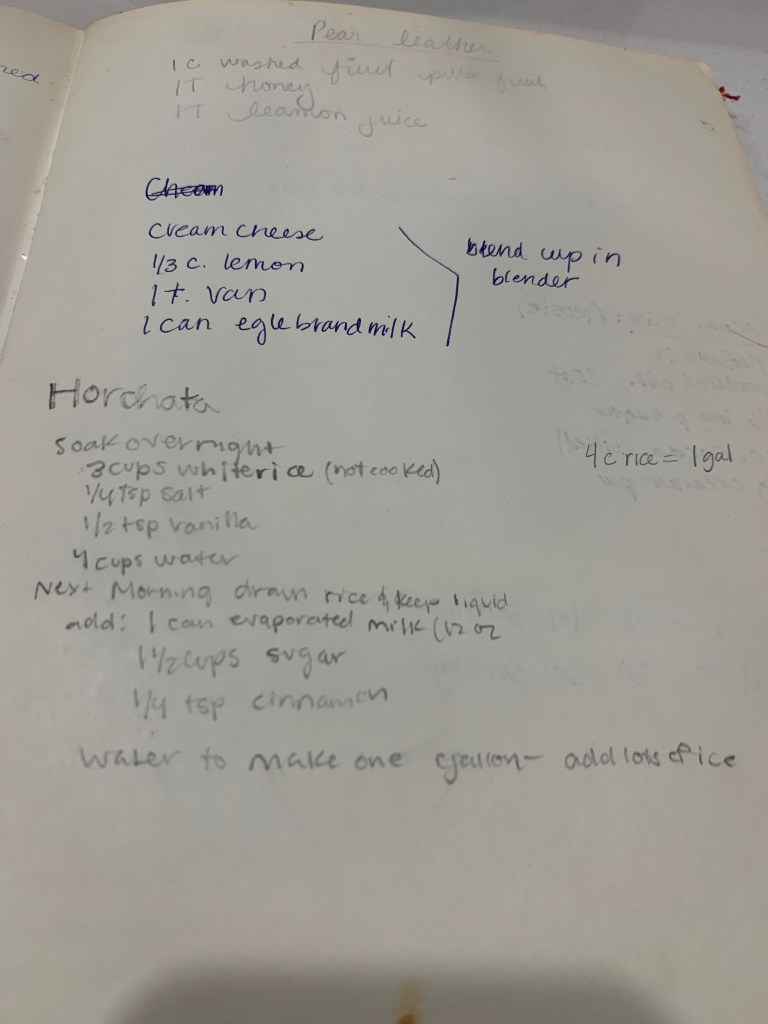 red
Pear leather
1 c washed
1T honey
1T leamon juice
cream cheese
1/3 c. lemon
1 t. van
1 can egle brand milk
blend up in
blender
Horchata
soak overnight
3 cups white rice (not cooked)
1/4 tsp salt
1/2 tsp vanilla
4 cups water
4 c rice = 1 gal
Next Morning drain rice & keep liquid
add: 1 can evaporated milk (12 oz
1 1/2 cups sugar
1/4 tsp cinnamon
Water to make one gallon - add lots of ice